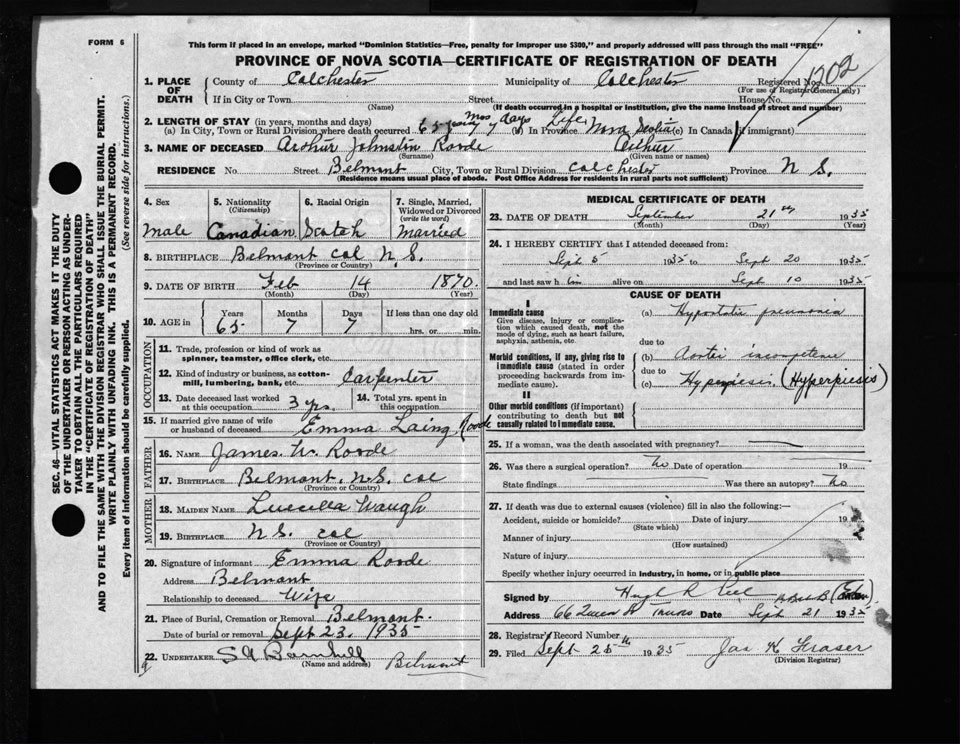 FORM 6
This form if placed in an envelope, marked "Dominion Statistics—Free, penalty for improper use $300," and properly addressed will pass through the mail "FREE"
PROVINCE OF NOVA SCOTIA—CERTIFICATE OF REGISTRATION OF DEATH
SEC. 46—VITAL STATISTICS ACT MAKES IT THE DUTY
OF THE UNDERTAKER OR PERSON ACTING AS UNDER-
TAKER TO OBTAIN ALL THE PARTICULARS REQUIRED
IN THE "CERTIFICATE OF REGISTRATION OF DEATH"
AND TO FILE THE SAME WITH THE DIVISION REGISTRAR WHO SHALL ISSUE THE BURIAL PERMIT.
WRITE PLAINLY WITH UNFADING INK. THIS IS A PERMANENT RECORD.
Every item of information should be carefully supplied. (See reverse side for instructions.)
1. PLACE OF DEATH
County of Colchester Municipality of Colchester Registered No. 1202
(For use of Registrar General only)
If in City or Town Street House No.
(Name) (If death occurred in a hospital or institution, give the name instead of street and number)
2. LENGTH OF STAY (in years, months and days)
(a) In City, Town or Rural Division where death occurred 65 years 7 Mos 7 days (b) In Province Life Nova Scotia (c) In Canada (if immigrant)
3. NAME OF DECEASED Arthur Johnston Roode Arthur
(Surname) (Given name or names)
RESIDENCE No Street Belmont City, Town or Rural Division Colchester Province N S.
(Residence means usual place of abode. Post Office Address for residents in rural parts not sufficient)
4. Sex
male
5. Nationality
(Citizenship)
Canadian
6. Racial Origin
Scotch
7. Single, Married,
Widowed or Divorced
(write the word)
Married
8. BIRTHPLACE Belmont Col N.S.
(Province or Country)
9. DATE OF BIRTH Feb 14 1870.
(Month) (Day) (Year)
10. AGE in
Years Months Days If less than one day old
65 7 7 hrs. or min.
OCCUPATION
11. Trade, profession or kind of work as
spinner, teamster, office clerk, etc.
12. Kind of industry or business, as cotton-
mill, lumbering, bank, etc. Carpenter
13. Date deceased last worked
at this occupation 3 yrs.
14. Total yrs. spent in
this occupation
15. If married give name of wife
or husband of deceased Emma Laing Roode
FATHER
16. NAME James W. Roode
17. BIRTHPLACE Belmont. N.S. Col
(Province or Country)
MOTHER
18. MAIDEN NAME Lucilla Waugh
19. BIRTHPLACE N S. Col
(Province or Country)
20. Signature of informant Emma Roode
Address Belmont
Relationship to deceased Wife
21. Place of Burial, Cremation or Removal Belmont.
Date of burial or removal Sept 23. 1935
22. UNDERTAKER Belmont
(Name and address)
MEDICAL CERTIFICATE OF DEATH
23. DATE OF DEATH September 21 1935
(Month) (Day) (Year)
24. I HEREBY CERTIFY that I attended deceased from:
Sept 5 1935 to Sept 20 1935
and last saw him alive on Sept 10 1935
CAUSE OF DEATH
I
Immediate cause
Give disease, injury or complica-
tion which caused death, not the
mode of dying, such as heart failure,
asphyxia, asthenia, etc.
(a) Hypostatic pneumonia
due to
Morbid conditions, if any, giving rise to
immediate cause (stated in order
proceeding backwards from im-
mediate cause).
(b) Aortic incompetence
due to
(c) Hyperpiesis (Hyperpiesis)
II
Other morbid conditions (if important)
contributing to death but not
causally related to immediate cause.
25. If a woman, was the death associated with pregnancy?
26. Was there a surgical operation? No Date of operation 19
State findings Was there an autopsy? No
27. If death was due to external causes (violence) fill in also the following:—
Accident, suicide or homicide? Date of injury 19
(State which)
Manner of injury
(How sustained)
Nature of injury
Specify whether injury occurred in industry, in home, or in public place
Signed by Hugh R Peel
Address 66 Queen St Truro Date Sept 21 1935
28. Registrar's Record Number
29. Filed Sept 25th 1935 Jas K Fraser
(Division Registrar)